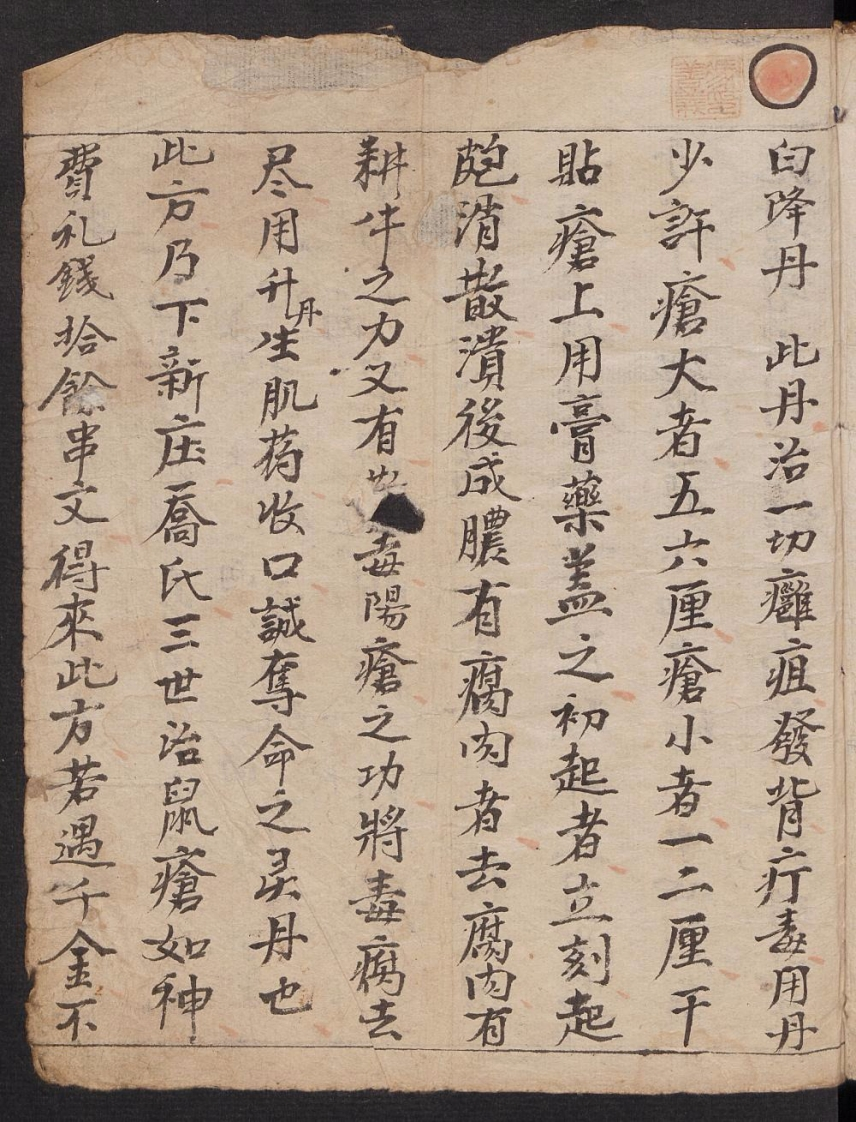 白降丹　此丹治一切癰疽發背疔毒用丹
少許瘡大者五六厘瘡小者一二厘干
貼瘡上用膏藥盖之初起者立刻起
皰消散潰後成膿有腐肉者去腐肉有
耕牛之力又有毒陽瘡之功將毒腐去
尽用升丹生肌药收口誠奪命之灵丹也
此方乃下新庄喬氏三世治鼠瘡如神
費礼錢拾餘串文得來此方若遇千金不